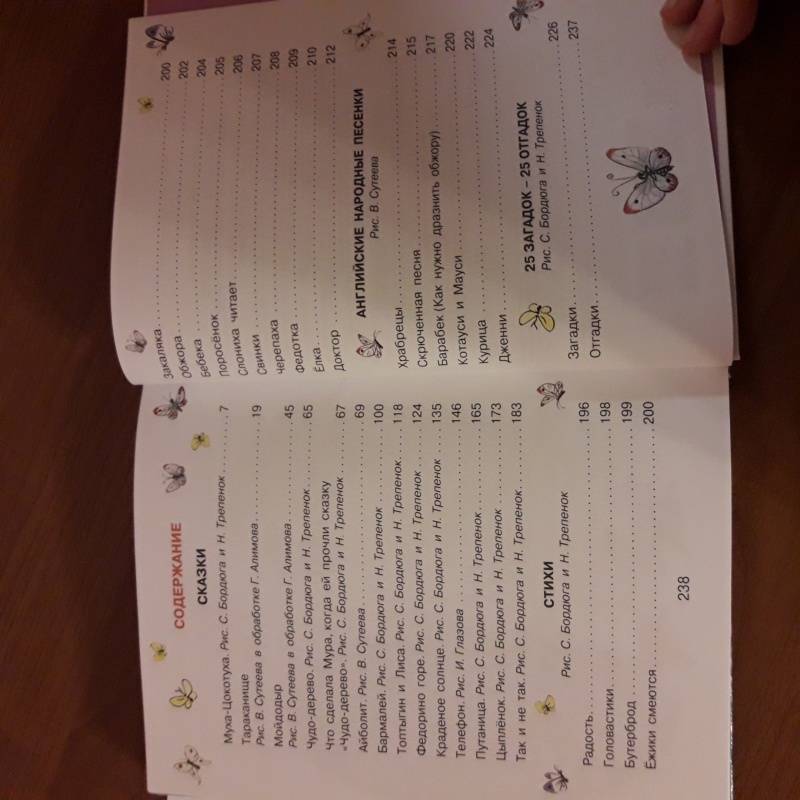 СОДЕРЖАНИЕ
СКАЗКИ
Муха-Цокотуха. Рис. С. Бордюга и Н. Трепенок . . . . . . . . 7
Тараканище
Рис. В. Сутеева в обработке Г. Алимова. . . . . . . . . . . . . 19
Мойдодыр
Рис. В. Сутеева в обработке Г. Алимова. . . . . . . . . . . . . 45
Чудо-дерево. Рис. С. Бордюга и Н. Трепенок. . . . . . . . . 65
Что сделала Мура, когда ей прочли сказку
«Чудо-дерево». Рис. С. Бордюга и Н. Трепенок . . . . . . . 67
Айболит. Рис. В. Сутеева. . . . . . . . . . . . . . . . . . . . . . 69
Бармалей. Рис. С. Бордюга и Н. Трепенок . . . . . . . . . . 100
Топтыгин и Лиса. Рис. С. Бордюга и Н. Трепенок. . . . . 118
Федорино горе. Рис. С. Бордюга и Н. Трепенок . . . . . . 124
Краденое солнце. Рис. С. Бордюга и Н. Трепенок . . . . 135
Телефон. Рис. И. Глазова . . . . . . . . . . . . . . . . . . . . . 146
Путаница. Рис. С. Бордюга и Н. Трепенок. . . . . . . . . . 165
Цыплёнок. Рис. С. Бордюга и Н. Трепенок . . . . . . . . . 173
Так и не так. Рис. С. Бордюга и Н. Трепенок. . . . . . . . 183
СТИХИ
Рис. С. Бордюга и Н. Трепенок
Радость. . . . . . . . . . . . . . . . . . . . . . . . . . . . . . . . . 196
Головастики. . . . . . . . . . . . . . . . . . . . . . . . . . . . . . 198
Бутерброд . . . . . . . . . . . . . . . . . . . . . . . . . . . . . . . 199
Ёжики смеются . . . . . . . . . . . . . . . . . . . . . . . . . . . . 200
238
Закаляка . . . . . . . . . . . . . . . . . . . . . . . . . . . . . . . . 200
Обжора . . . . . . . . . . . . . . . . . . . . . . . . . . . . . . . . . 202
Бебека . . . . . . . . . . . . . . . . . . . . . . . . . . . . . . . . . 204
Поросёнок . . . . . . . . . . . . . . . . . . . . . . . . . . . . . . . 205
Слониха читает . . . . . . . . . . . . . . . . . . . . . . . . . . . 206
Свинки . . . . . . . . . . . . . . . . . . . . . . . . . . . . . . . . . 207
Черепаха . . . . . . . . . . . . . . . . . . . . . . . . . . . . . . . . 208
Федотка . . . . . . . . . . . . . . . . . . . . . . . . . . . . . . . . 209
Ёлка. . . . . . . . . . . . . . . . . . . . . . . . . . . . . . . . . . . 210
Доктор . . . . . . . . . . . . . . . . . . . . . . . . . . . . . . . . . 212
АНГЛИЙСКИЕ НАРОДНЫЕ ПЕСЕНКИ
Рис. В. Сутеева
Храбрецы . . . . . . . . . . . . . . . . . . . . . . . . . . . . . . . 214
Скрюченная песня . . . . . . . . . . . . . . . . . . . . . . . . . 215
Барабек (Как нужно дразнить обжору) . . . . . . . . . . . 217
Котауси и Мауси . . . . . . . . . . . . . . . . . . . . . . . . . . 220
Курица . . . . . . . . . . . . . . . . . . . . . . . . . . . . . . . . . 222
Дженни . . . . . . . . . . . . . . . . . . . . . . . . . . . . . . . . . 224
25 ЗАГАДОК – 25 ОТГАДОК
Рис. С. Бордюга и Н. Трепенок
Загадки. . . . . . . . . . . . . . . . . . . . . . . . . . . . . . . . . 226
Отгадки. . . . . . . . . . . . . . . . . . . . . . . . . . . . . . . . . 237